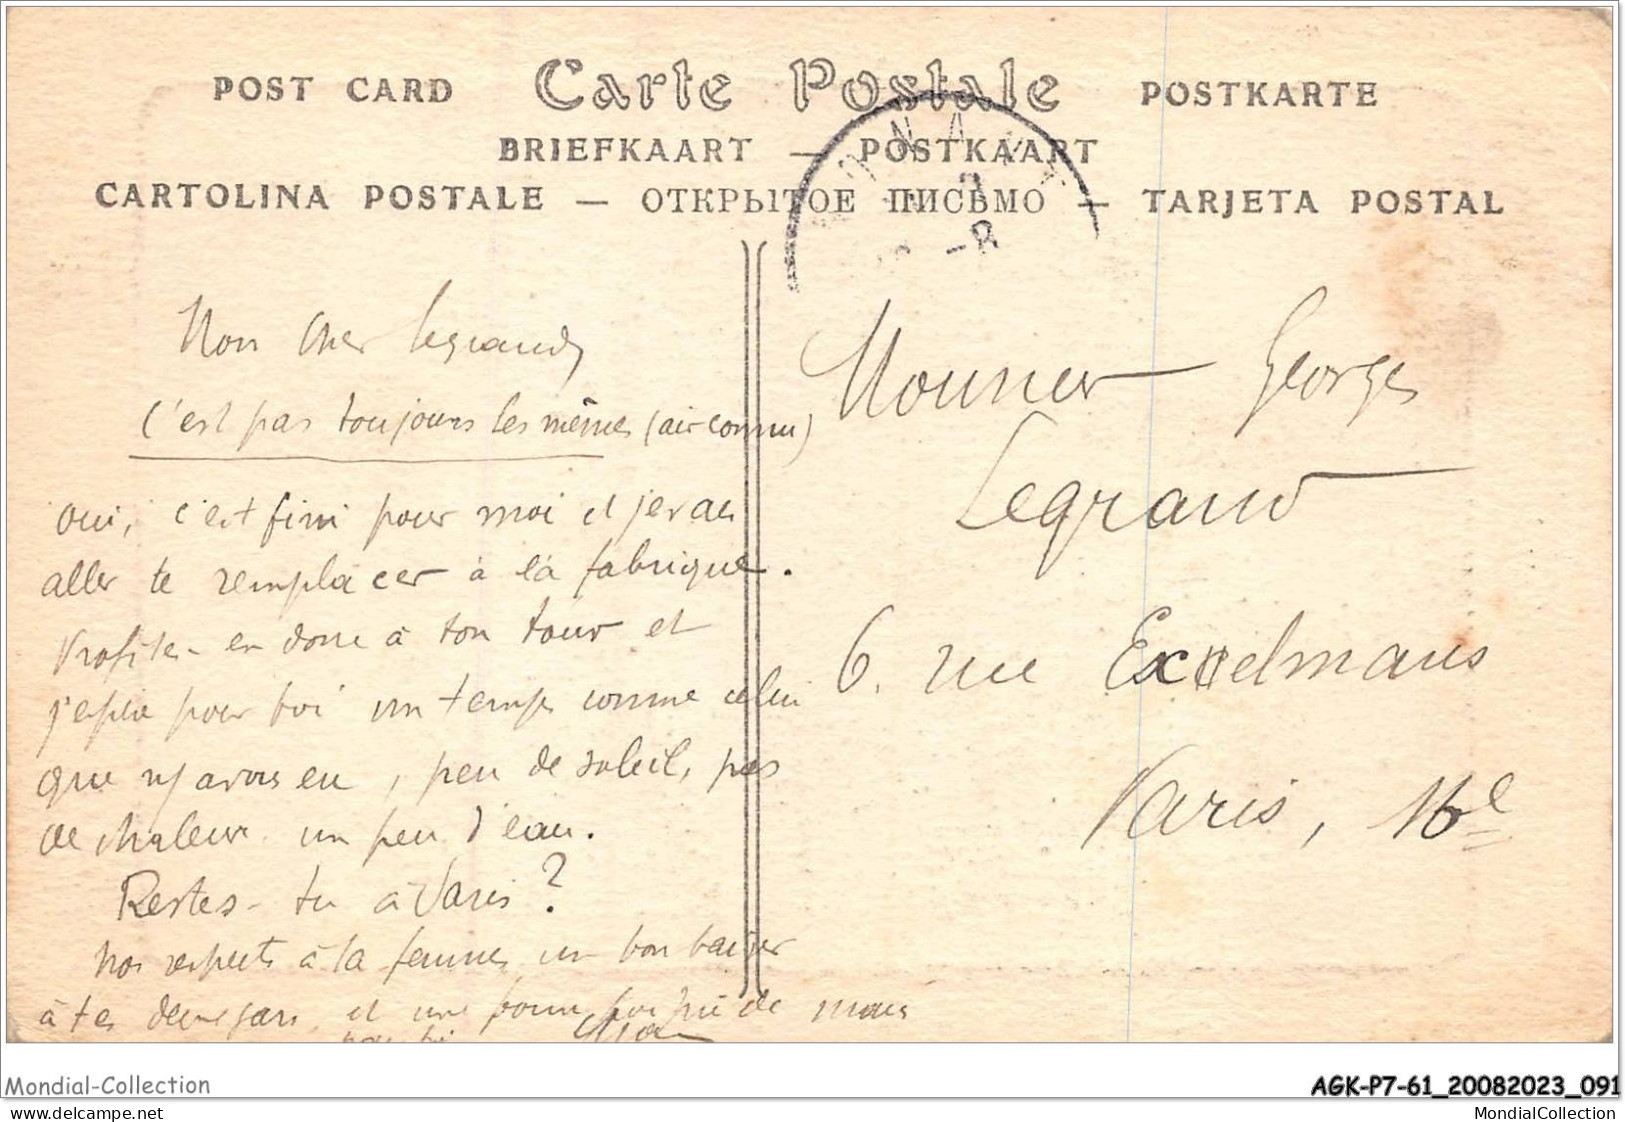 POST CARD Carte Postale POSTKARTE
BRIEFKAART — POSTKAART
CARTOLINA POSTALE — ОТКРЫТОЕ ПИСЬМО — TARJETA POSTAL
Mon cher Legrand,
c'est pas toujours les mêmes (air connu)
Oui, c'est fini pour moi et je vais
aller te remplacer à la fabrique.
Profites-en donc à ton tour et
j'espère pour toi un temps comme celui
que nj avons eu, peu de soleil, pas
de chaleur un peu d'eau.
Restes-tu à Paris?
Nos respects à ta femme un bon baiser
à tes deux gars et une bonne poignée de main
pour toi
Monsieur Georges
Legrand
6. rue Exelmans
Paris, 16e
Mondial-Collection
AGK-P7-61_20082023_091
MondialCollection